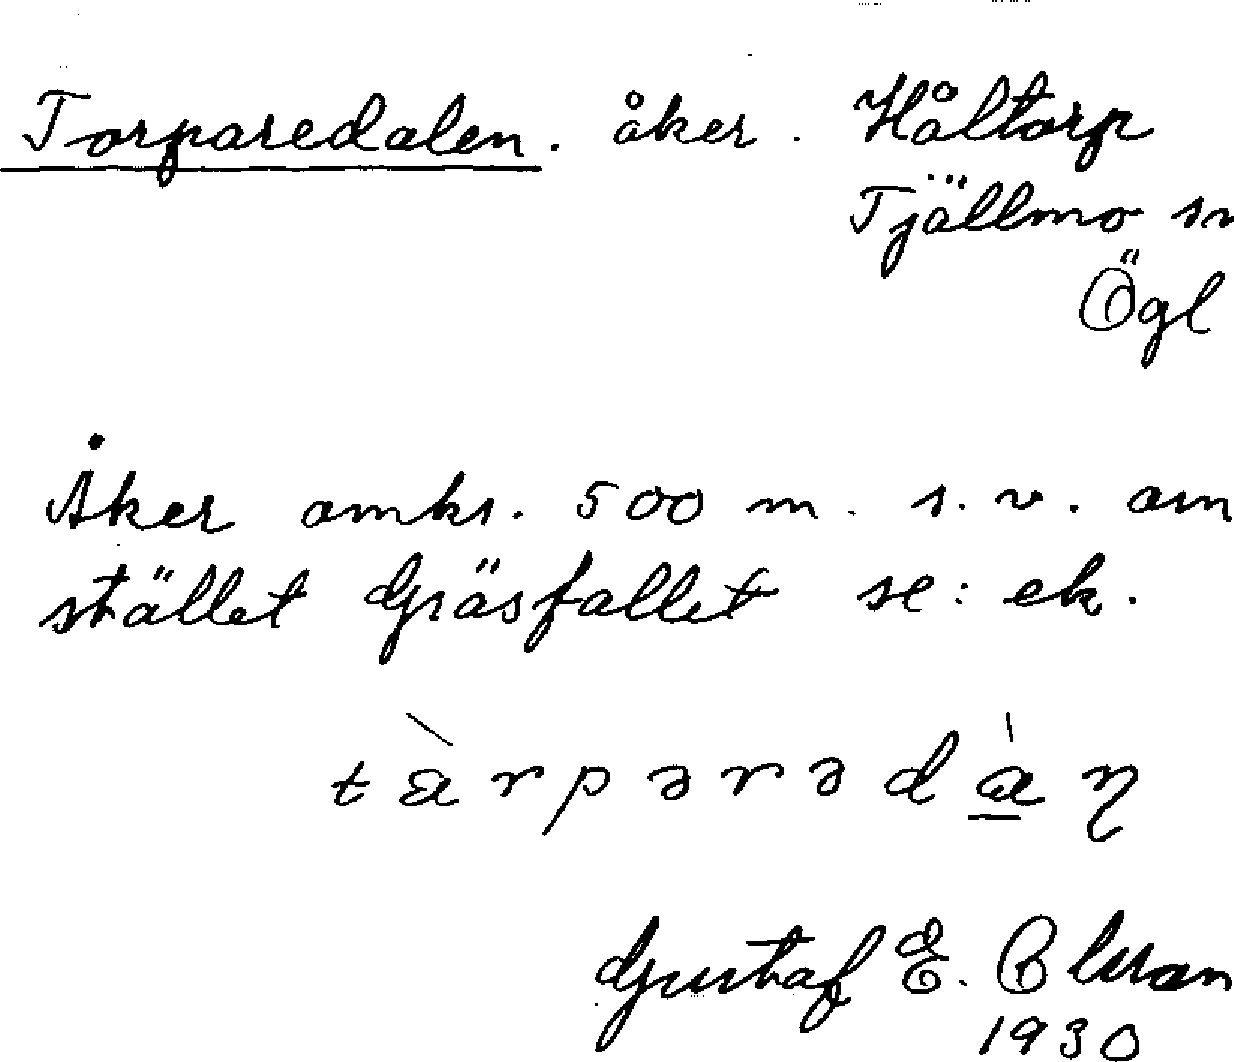 Torparedalen. åker. Håltorp
Tjällmo sn
Ögl
Åker omkr. 500 m. s. v. om
stället Gräsfallet se: ek.
Gustaf E.
1930